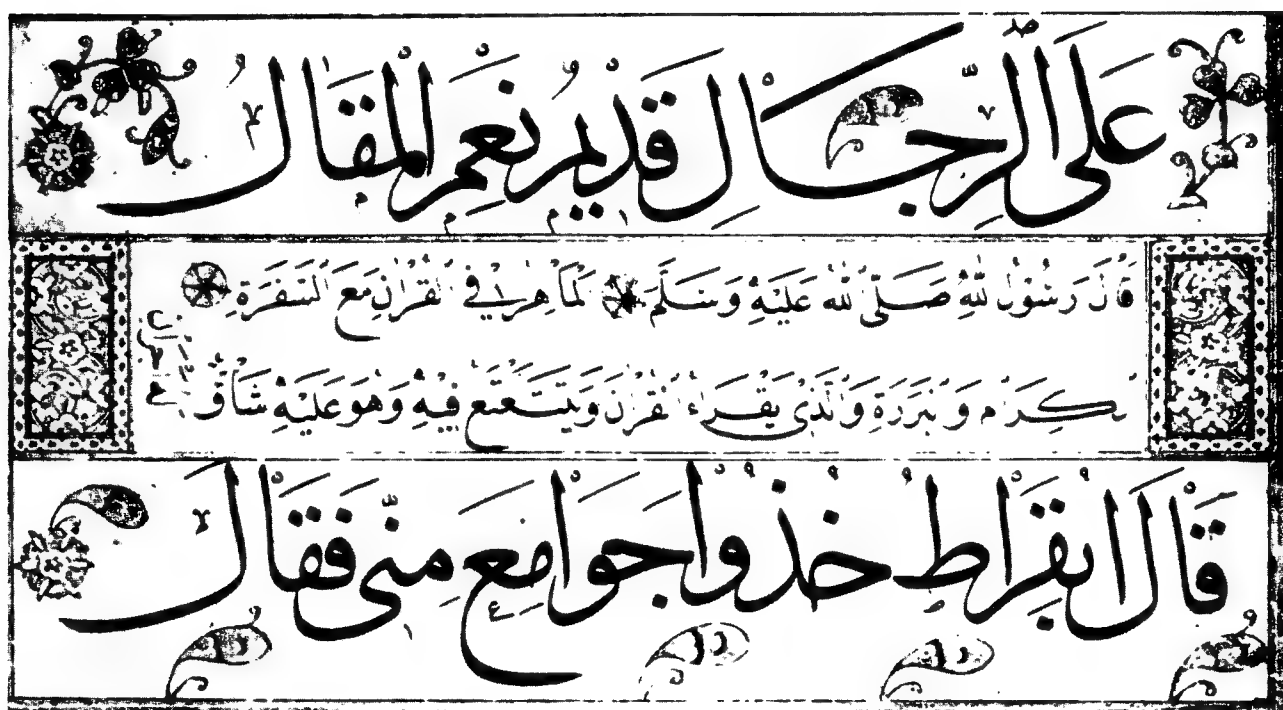 عَلَى الرِّجَالِ قَدِيمٌ نِعْمَ الْمَقَالُ
قَالَ رَسُولُ اللهِ صَلَّى اللهُ عَلَيْهِ وَسَلَّمَ الْمَاهِرُ فِي الْقُرْآنِ مَعَ السَّفَرَةِ
الْكِرَامِ وَالْبَرَرَةِ وَالَّذِي يَقْرَاءُ الْقُرْآنَ وَيَتَتَعْتَعُ فِيهِ وَهُوَ عَلَيْهِ شَاقٌّ
قَالَ ابُقْرَاطُ خُذُوا جَوَامِعَ مِنِّي فَقَالَ